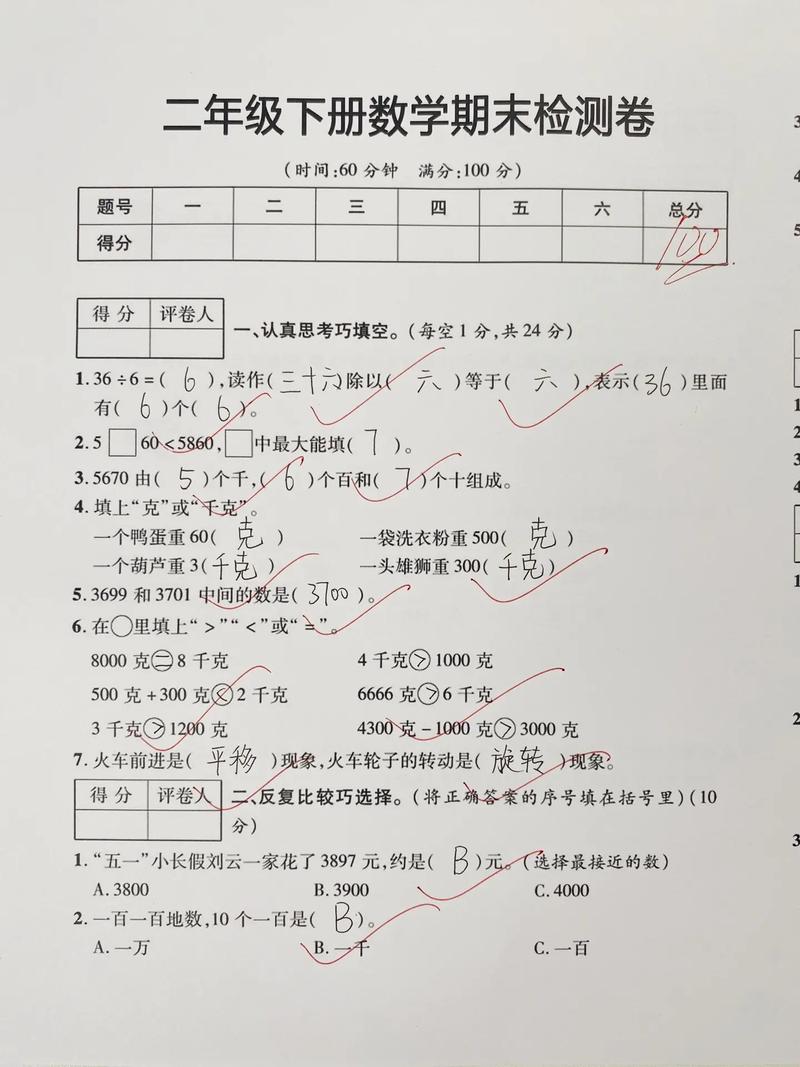 二年级下册数学期末检测卷
(时间:60分钟 满分:100分)
题号 一 二 三 四 五 六 总分
得分 100
得分 评卷人
一、认真思考巧填空。(每空1分,共24分)
1.36÷6=( 6 ),读作(三十六)除以( 六 )等于( 六 ),表示(36)里面
有( 6 )个( 6 )。
2.5□60<5860,□中最大能填( 7 )。
3.5670由( 5 )个千,( 6 )个百和( 7 )个十组成。
4.填上“克”或“千克”。
一个鸭蛋重60( 克 ) 一袋洗衣粉重500( 克 )
一个葫芦重3(千克) 一头雄狮重300(千克)
5.3699和3701中间的数是( 3700 )。
6.在○里填上“>”“<”或“=”。
8000克=8千克 4千克>1000克
500克+300克<2千克 6666克>6千克
3千克>1200克 4300克-1000克>3000克
7.火车前进是( 平移 )现象,火车轮子的转动是( 旋转 )现象。
得分 评卷人
二、反复比较巧选择。(将正确答案的序号填在括号里)(10
分)
1.“五一”小长假刘云一家花了3897元,约是( B )元。(选择最接近的数)
A.3800 B.3900 C.4000
2.一百一百地数,10个一百是( B )。
A.一万 B.一千 C.一百
3
4
5
1
2
3
4
1
2
3